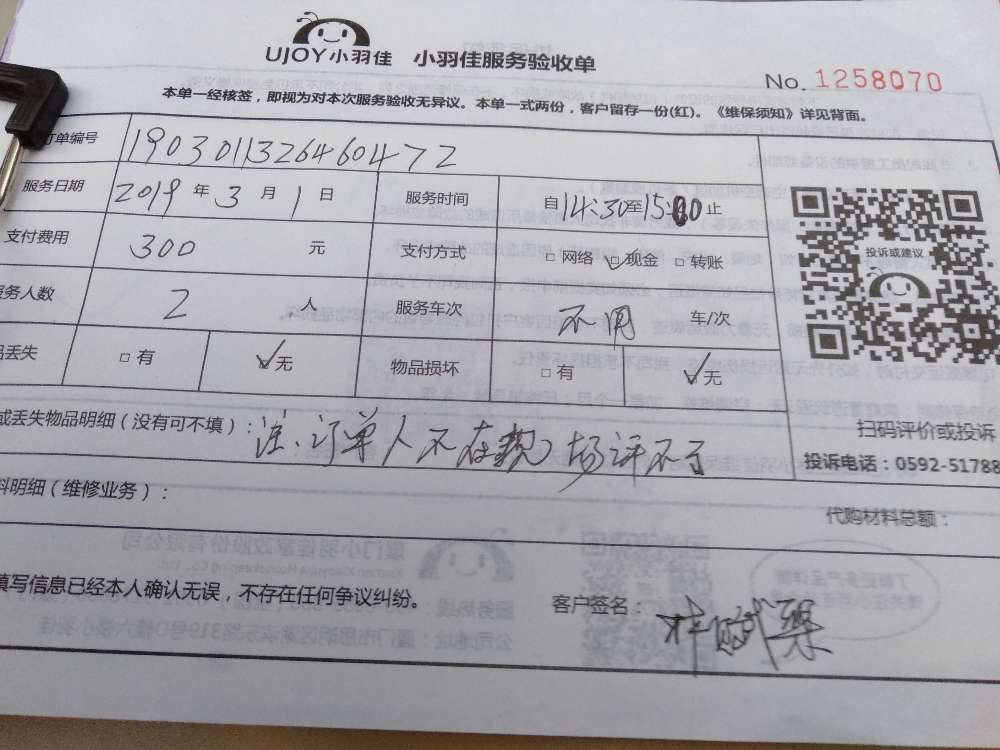 UJOY小羽佳 小羽佳服务验收单
No. 1258070
本单一经核签，即视为对本次服务验收无异议。本单一式两份，客户留存一份(红)。《维保须知》详见背面。
订单编号 1903011326460472
服务日期 2019 年 3 月 1 日 服务时间 自14:30至15:00止
支付费用 300 元 支付方式 □ 网络 ☑ 现金 □ 转账
服务人数 2 人 服务车次 不用 车/次
品丢失 □ 有 ☑ 无 物品损坏 □ 有 ☑ 无
投诉或建议
扫码评价或投诉
投诉电话：0592-51788
或丢失物品明细（没有可不填）：注：订单人不在现场评不了
料明细（维修业务）：
代购材料总额：
填写信息已经本人确认无误，不存在任何争议纠纷。
客户签名：